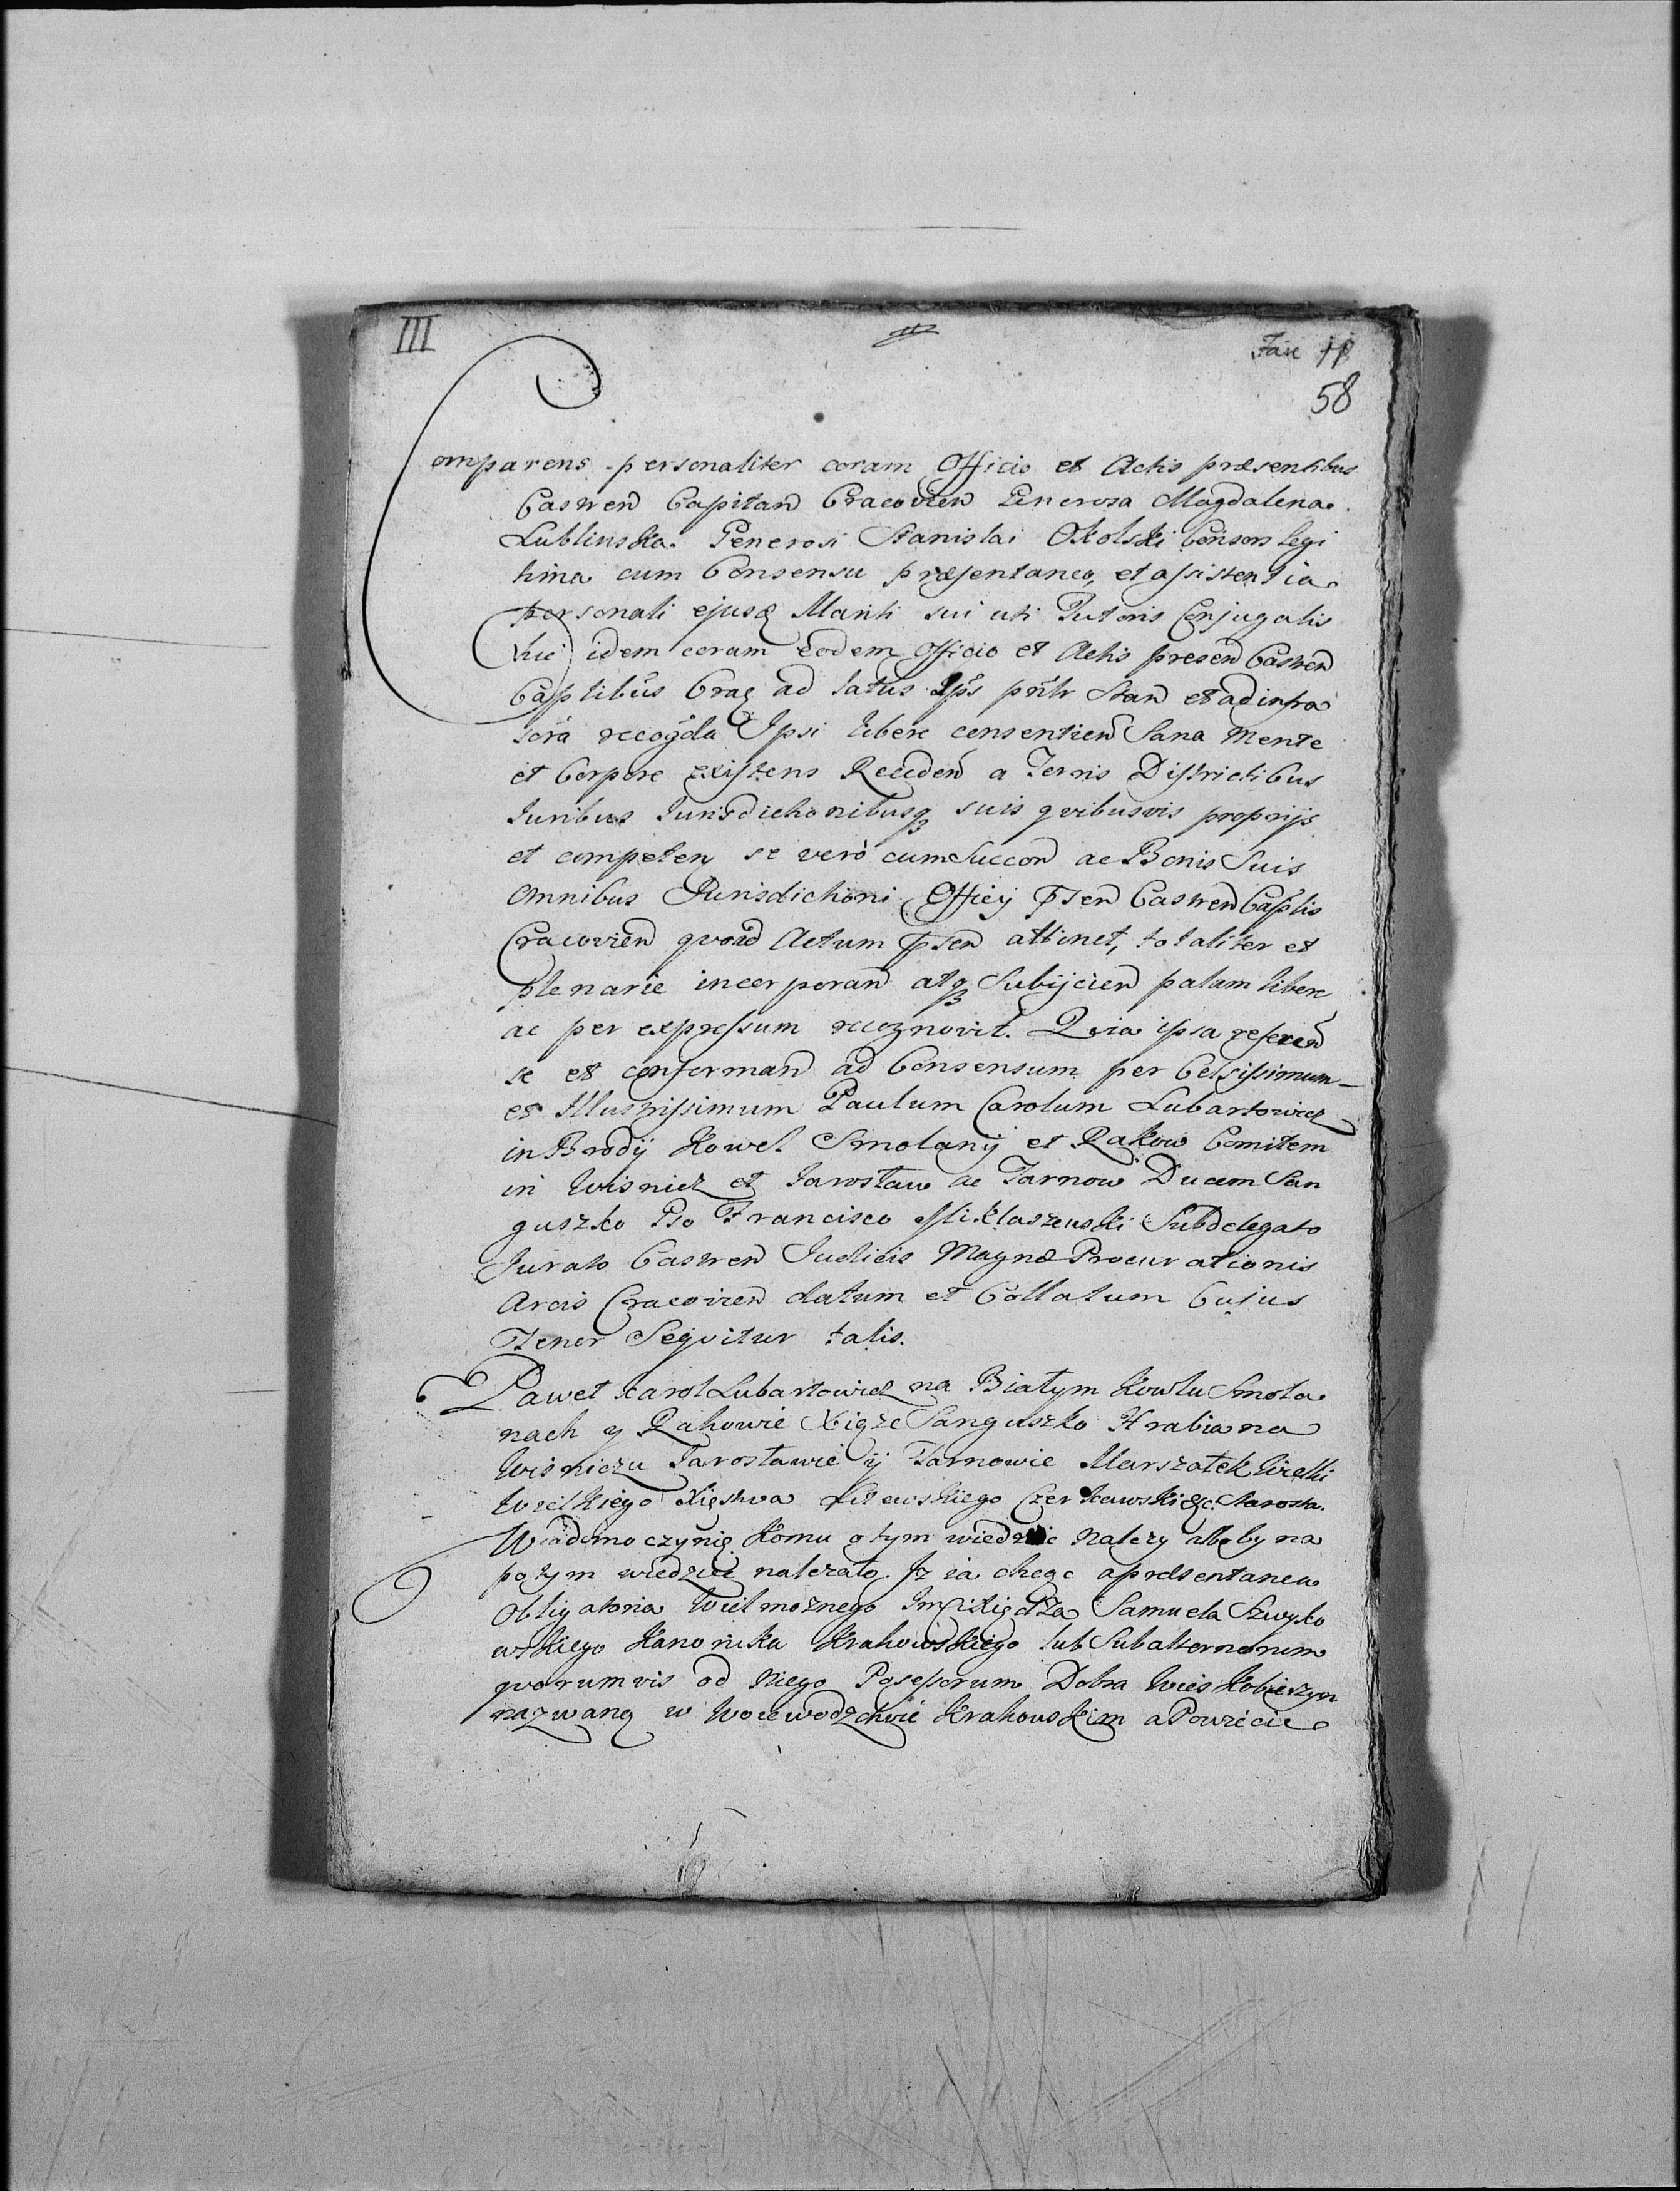 III
58
Comparens personaliter coram Officio et Actis præsentibus
Castren Capitan Cracovien Generosa Magdalena
Lublinska Generosi Stanislai Okolski Consors Legi
tima cum Consensu præsentaneo, et assistentia
personali ejusq Mariti sui uti Tutoris Conjugalis
hic idem coram eodem Officio et Actis presen Castren
Captibus Crac ad latus Ips pntr Stan et ad infra
scra recogda Ipsi libere consentien Sana Mente
et Corpore existens Receden a Terris Districtibus
Juribus Jurisdictionibusq suis quibusvis proprijs
et competen se verò cum Succon ac Bonis Suis
Omnibus Jurisdictioni Officij psen Castren Captis
Cracovien quoad Actum psen attinet, totaliter et
plenarie incorporan atq Subijcien palam libere
ac per expressum recognovit. Quia ipsa referen
se et conforman ad Consensum per Celsissimum
et Illustrissimum Paulum Carolum Lubartowicz
in Brody Kowel Smolany et Rakow Comitem
in Wisnicz et Jarosław ac Tarnow Ducem San
guszko Gso Francisco Miklaszewski Subdelegato
Jurato Castren Judicis Magnæ Procurationis
Arcis Cracovien datum et Collatum Cujus
Tenor Sequitur talis.
Paweł Karol Lubartowicz na Białym Kowlu Smola
nach y Rakowie Xiąże Sanguszko Hrabia na
Wisniczu Jarosławie ij Tarnowie Marszałek Wielki
Wielkiego Xięstwa Litewskiego Czerkawski &c. Starosta.
Wiadomo czynię Komu o tym wiedziec Nalezy alboby na
potym wiedziec nalezało. Jz ia chcąc a præsentanea
Obligatoria Wielmożnego Jmci Xiędza Samuela Szwyko
wskiego Kanonika Krakowskiego lub Subalternorum
quorumvis od Niego Possessorum Dobra Wieś Kobieszyn
nazwaną w Woiewodztwie Krakowskim a Powiecie